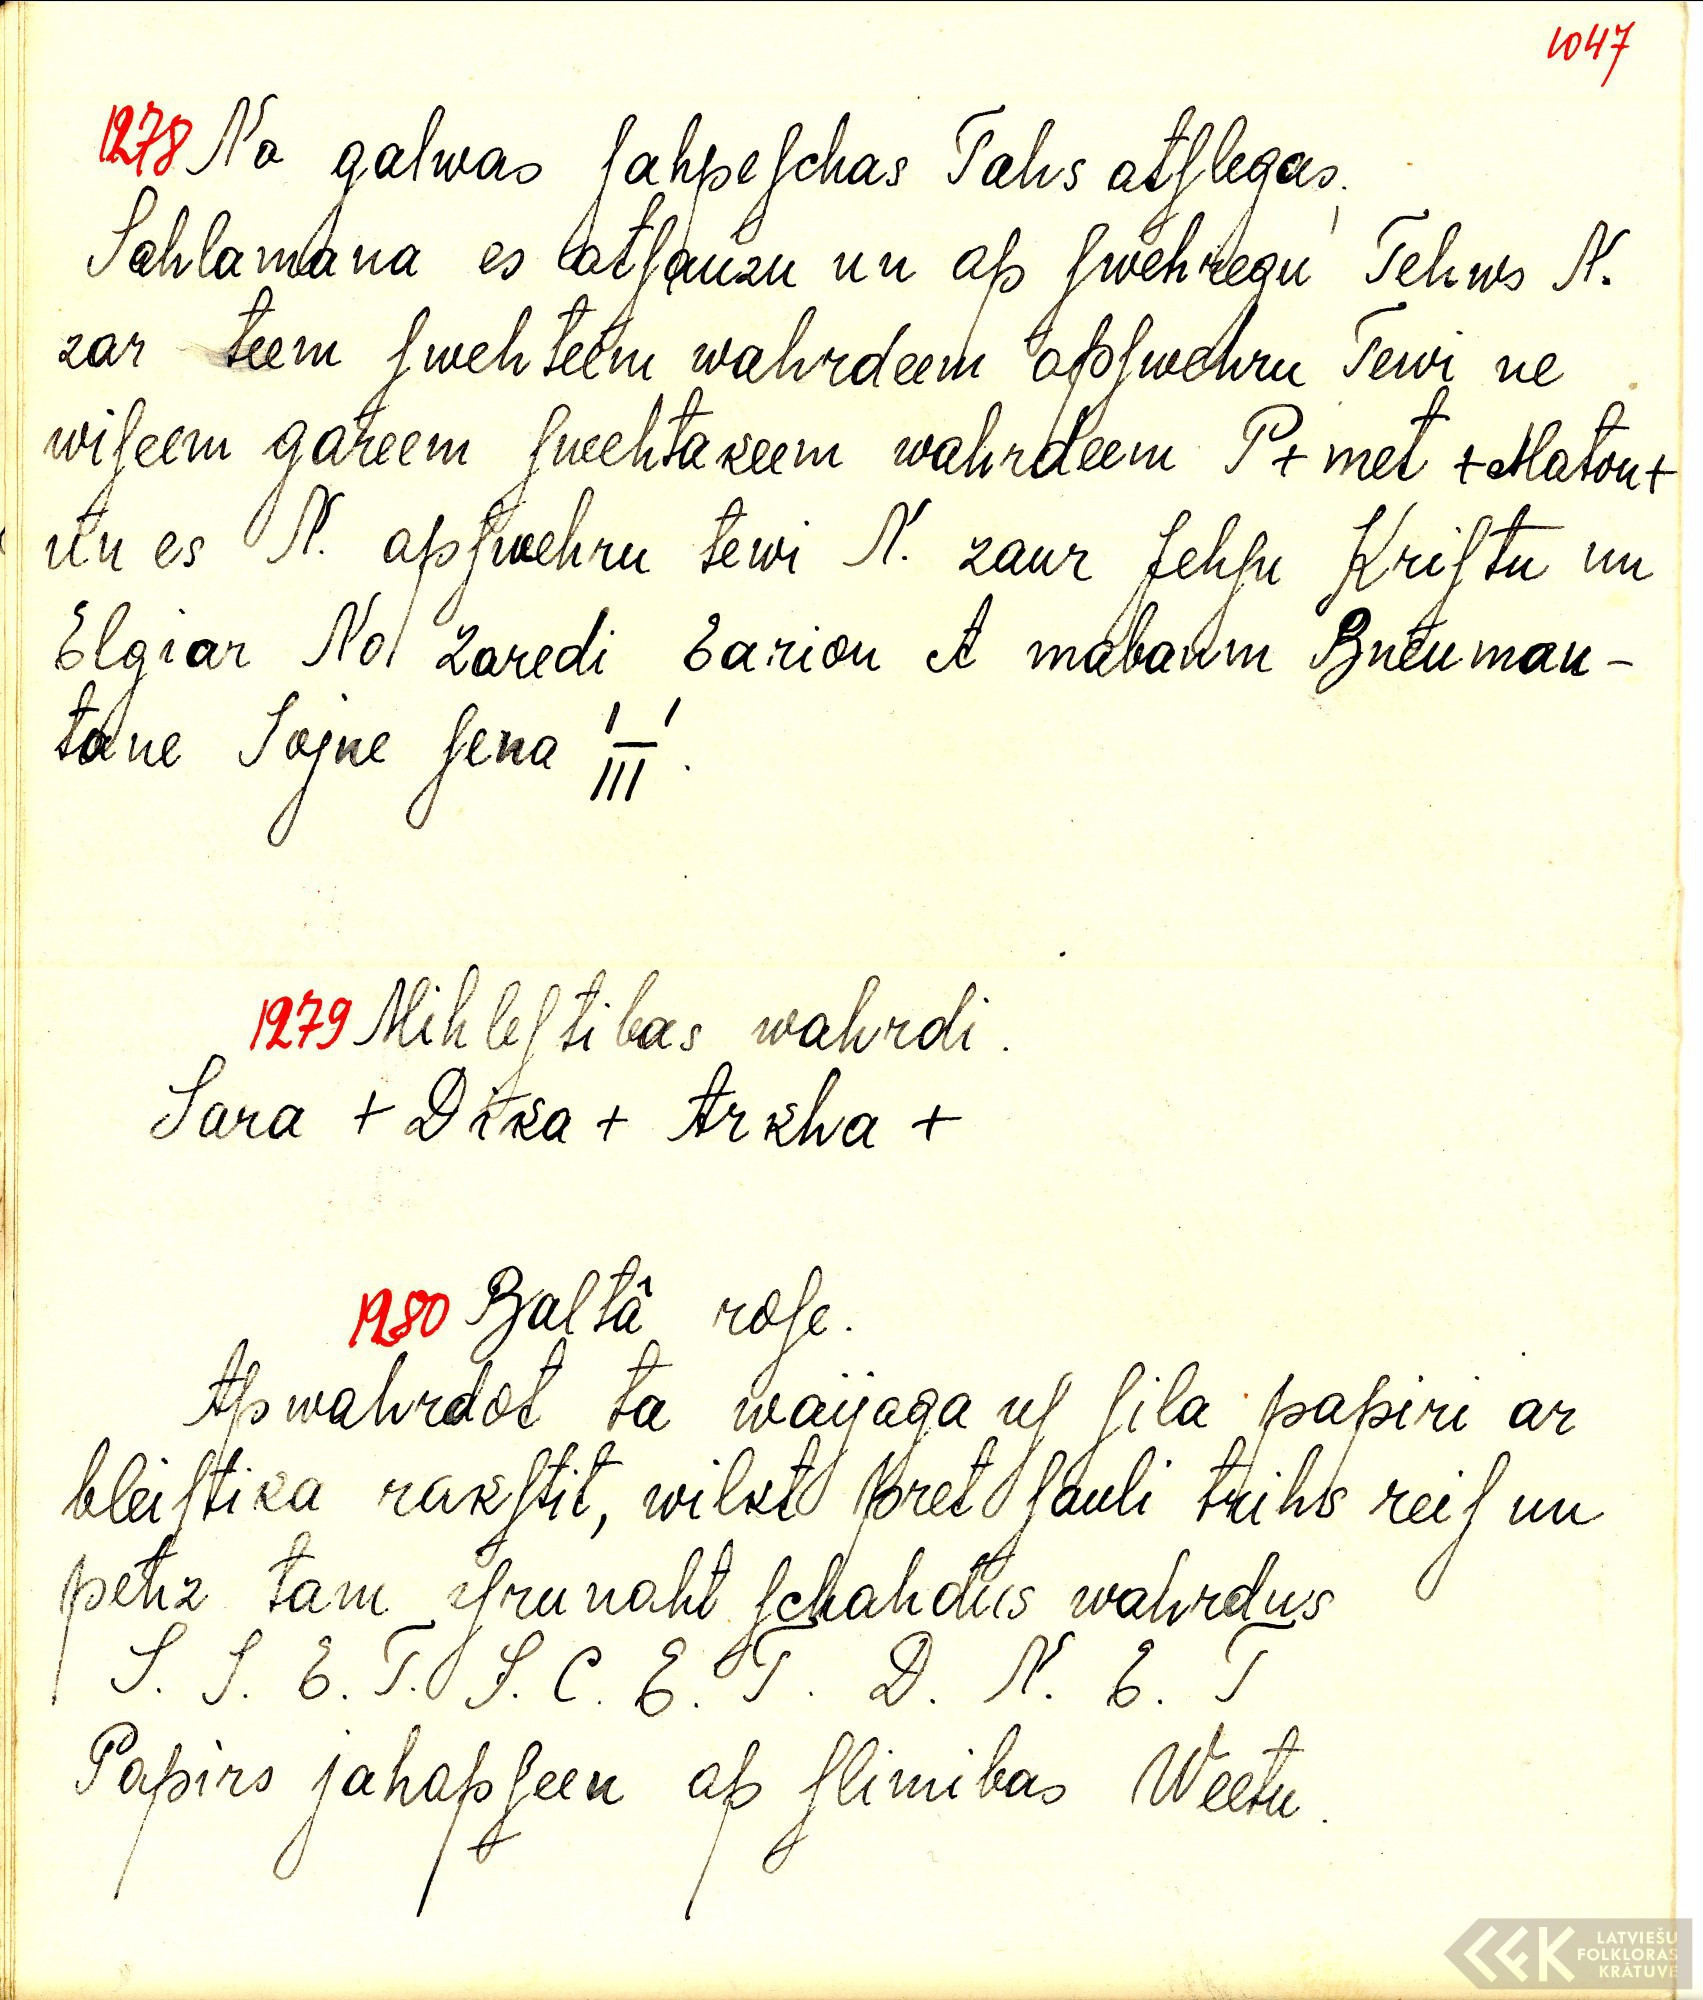 1047
1278 No galwas ſahpeſchas Tahs atſlegas,
Sahlamana es atſauzu un ap ſwehregu Tehws N.
zar teem ſwehteem wahrdeem apſwehru Tewi ne
wiſeem gareem ſwehtakeem wahrdeem P+ met + Maton+
un es N. apſwehru tewi N. zaur Jehſu Kriſtu un
Elgiar No Zaredi Earion A mabaum Bneuman-
tane Sojne ſena III
1279 Mihleſtibas wahrdi.
Sara + Dika + Arkha +
1280 Baltâ roſe.
Apwahrdot ta waijaga uſ ſila papiri ar
bleiſtika rakſtit, wilkt pret ſauli trihs reiſ un
pehz tam iſrunaht ſchahdus wahrdus
S. S. E. T. S. C. E. T. D. N. E. T
Papirs jahapſeen ap ſlimibas Weetu.
LATVIEŠU
FOLKLORAS
KRĀTUVE